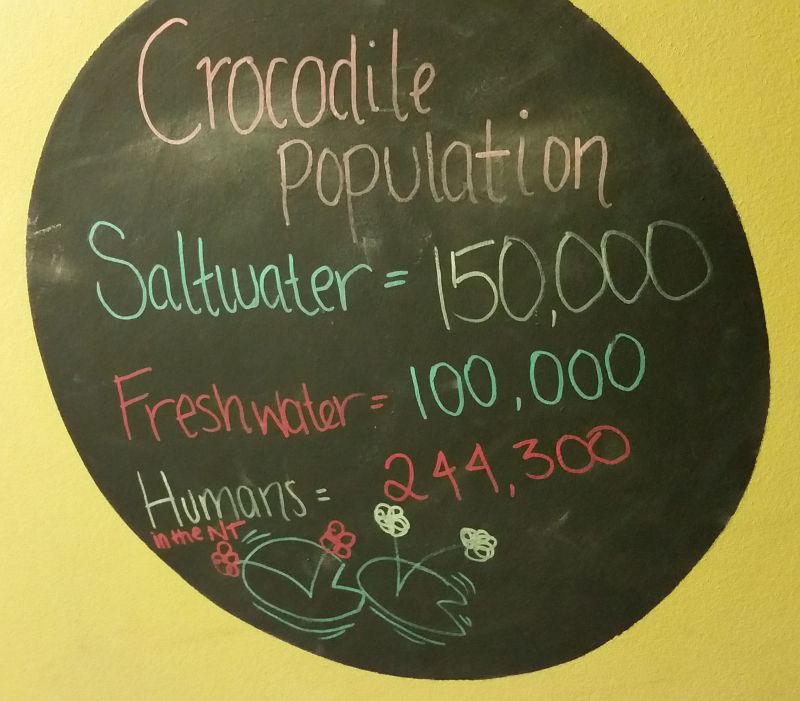 Crocodile
population
Saltwater = 150,000
Freshwater = 100,000
Humans = 244,300
in the NT